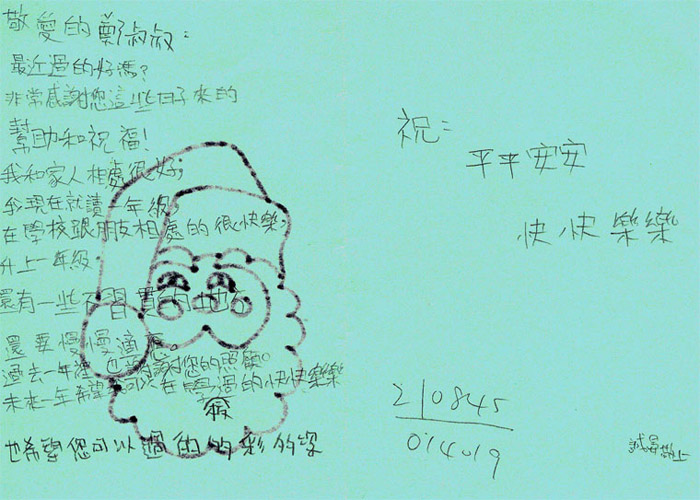 敬愛的鄭叔叔：
最近過的好嗎？
非常感謝您這些日子來的
幫助和祝福！
我和家人相處很好；
我現在就讀一年級，
在學校跟朋友相處的很快樂，
升上一年級，
還有一些不習慣的地方
還要慢慢適應。
過去一年裡也謝謝您的照顧。
未來一年希望我可以在學過的快快樂樂
也希望您可以過的的彩的
祝：
平平安安
快快樂樂
210845
014019
敬上